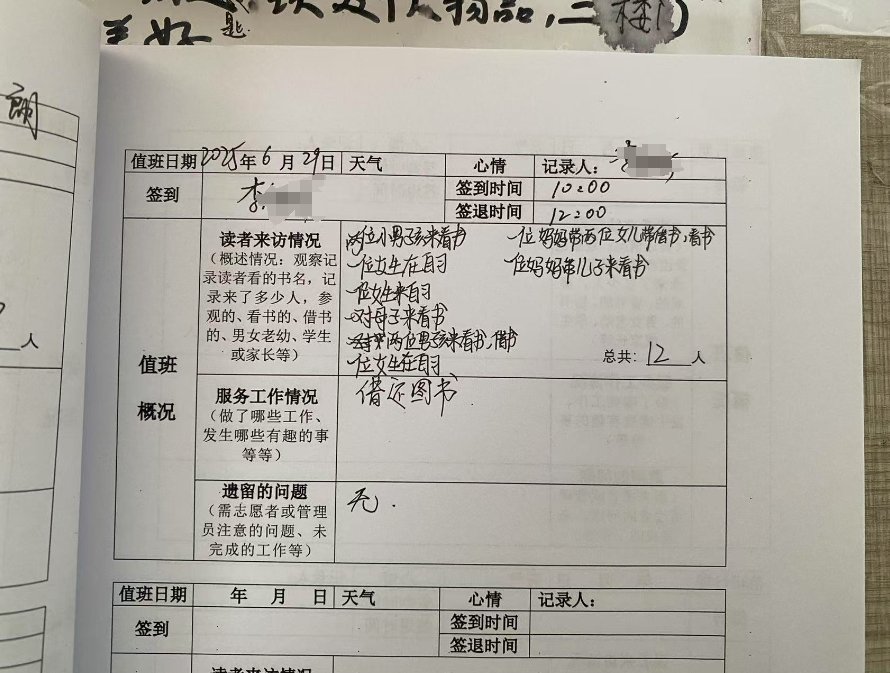 物品,二楼门)
美好
匙
朗
人
值班日期 2025年6月29日 天气 心情 记录人:
签到 李 签到时间 10:00
签退时间 12:00
值班概况
读者来访情况
(概述情况:观察记
录读者看的书名,记
录来了多少人,参
观的、看书的、借书
的、男女老幼、学生
或家长等)
两位小男孩来看书
一位女生在自习
一位女生来自习
一对母子来看书
两位男孩来看书,借书
一位女生在自习
一位妈妈带两位女儿带借书,看书
一位妈妈带儿子来看书
总共:12人
服务工作情况
(做了哪些工作、
发生哪些有趣的事
等等)
借还图书
遗留的问题
(需志愿者或管理
员注意的问题、未
完成的工作等)
无.
值班日期 年 月 日 天气 心情 记录人:
签到 签到时间
签退时间
读者来访情况